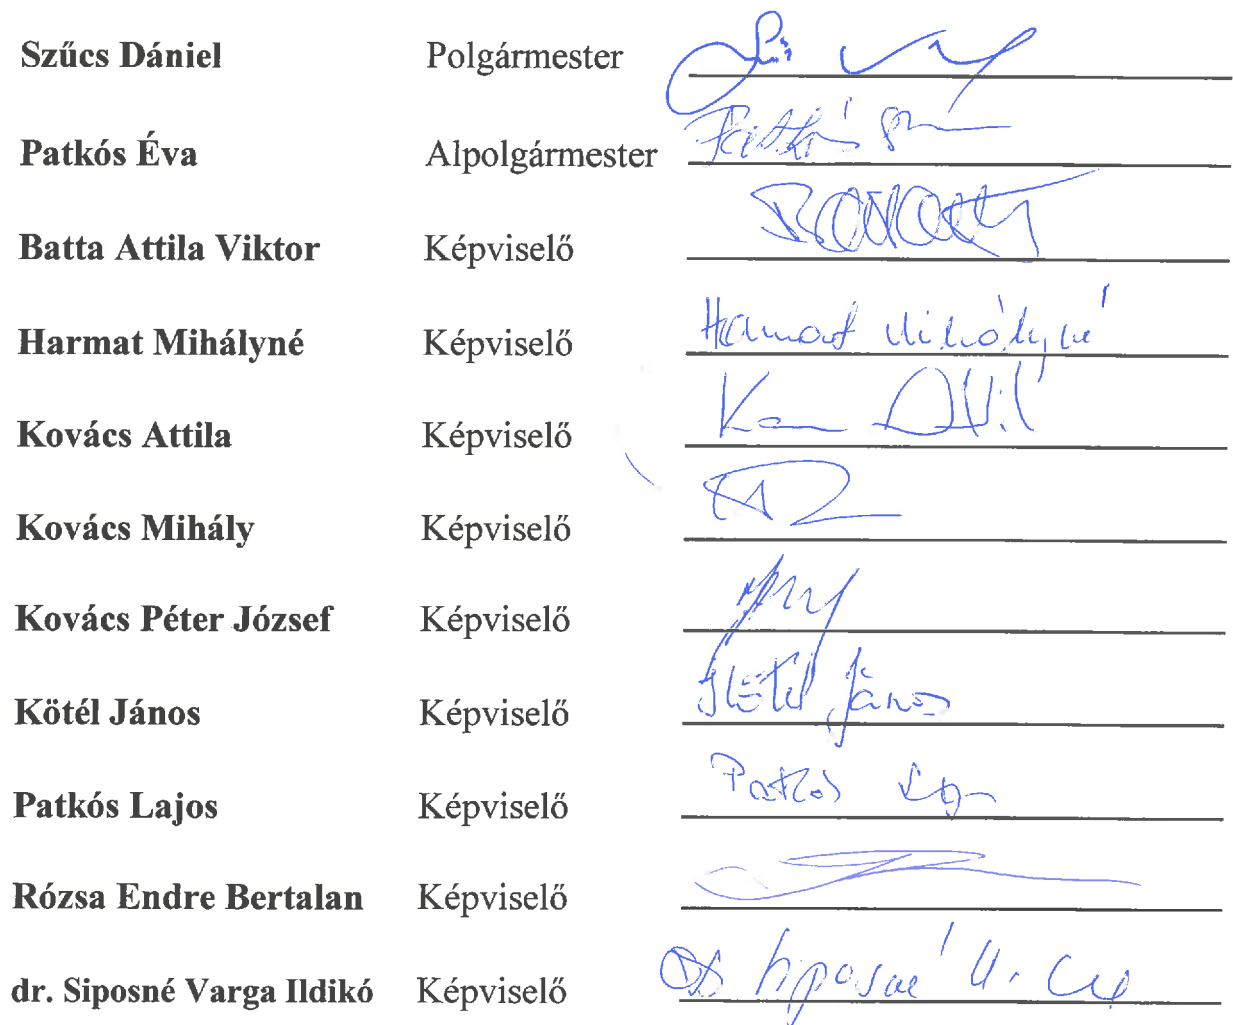 Szűcs Dániel Polgármester
Patkós Éva Alpolgármester Patkós
Batta Attila Viktor Képviselő
Harmat Mihályné Képviselő Harmat Mihályné
Kovács Attila Képviselő
Kovács Mihály Képviselő
Kovács Péter József Képviselő
Kötél János Képviselő Kötél János
Patkós Lajos Képviselő Patkós
Rózsa Endre Bertalan Képviselő
dr. Siposné Varga Ildikó Képviselő Siposné